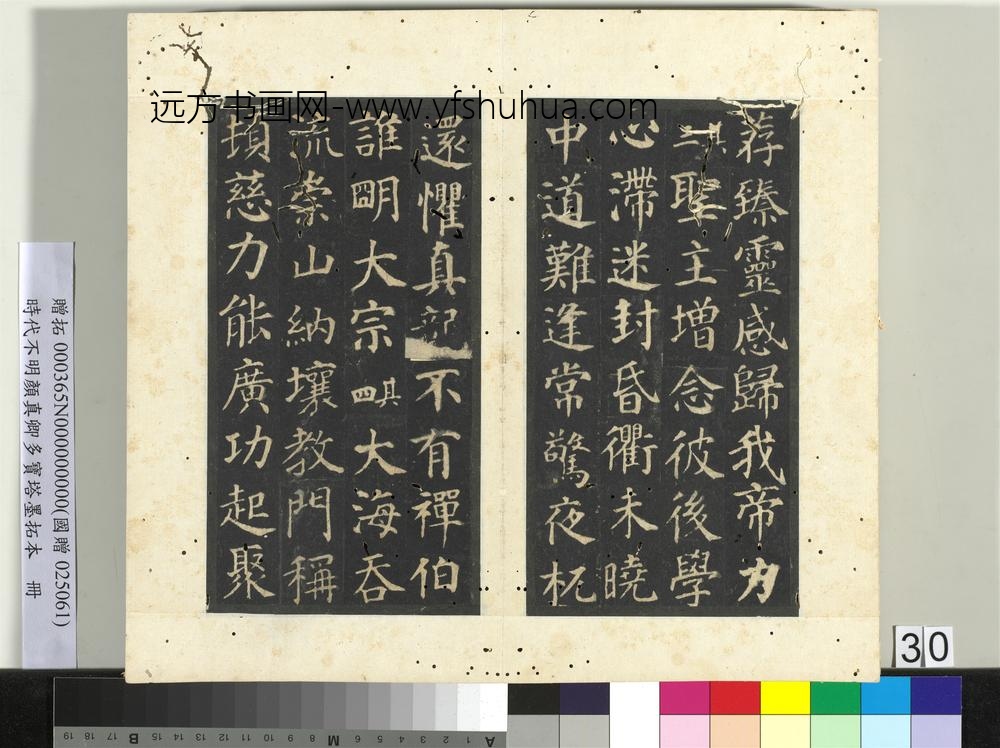 荐臻靈感歸我帝力
其三聖主增念彼後學
心滯迷封昏衢未曉
中道難逢常驚夜杌
還懼真不有禪伯
誰明大宗其四大海吞
流崇山納壤教門稱
頓慈力能廣功起聚
远方书画网-www.yfshuhua.com
贈拓 000365N000000000(國贈 025061)
時代不明顏真卿多寶塔墨拓本 冊
30
19 18 17 16 15 B 14 13 12 11 10 9 8 M 7 6 5 4 3 2 1 A